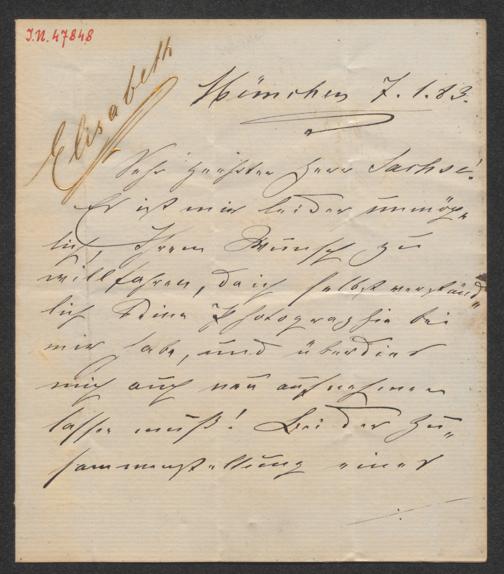 I.N. 47848
Elisabeth
München 7.1.83.
Sehr geehrter Herr Sachse!
Es ist mir leider unmög-
lich, Ihrem Wunsch zu
willfahren, da ich selbstverständ-
lich keine Photographie bei
mir habe, und überdies
mich auch neu aufnehmen
lassen muß! Bei der Zu-
sammenstellung eines